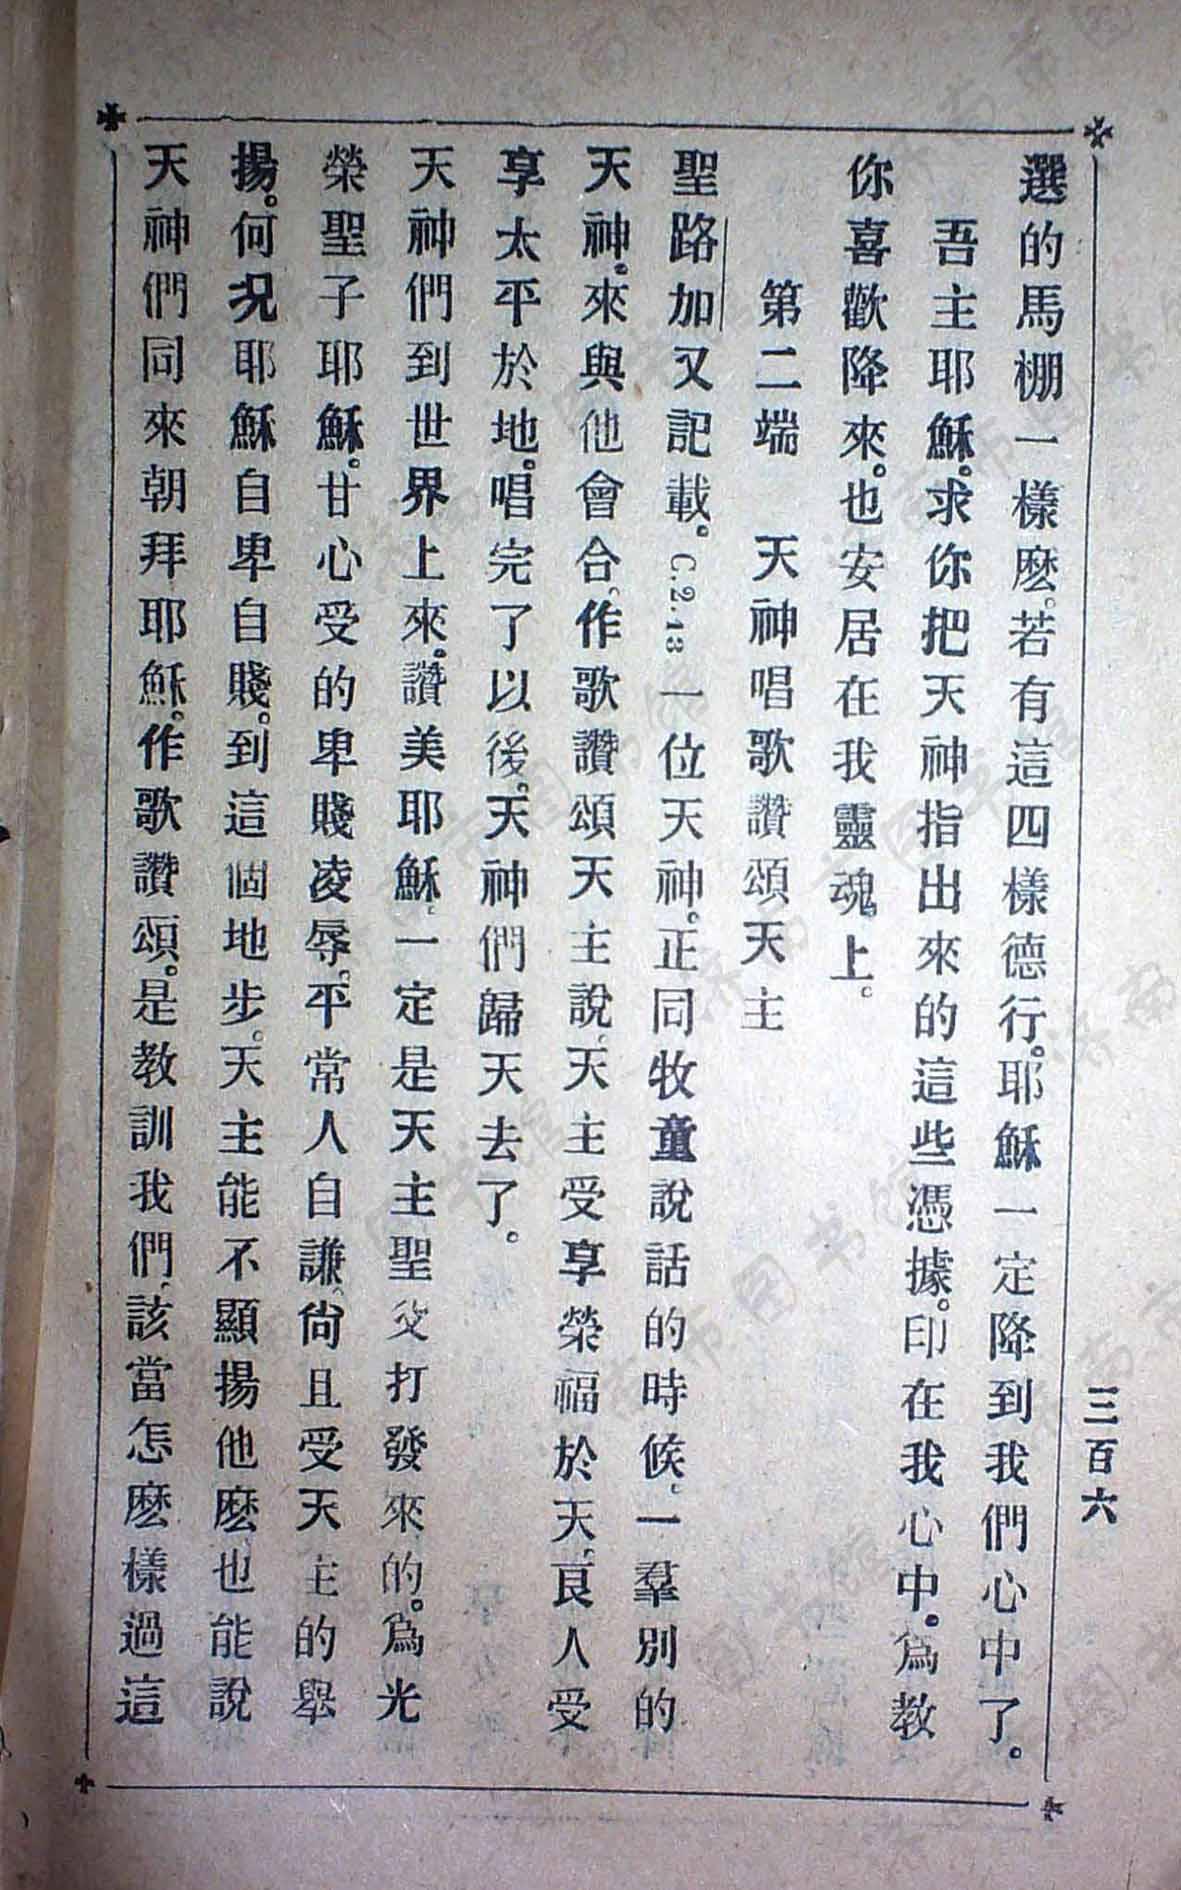 三百六
選的馬棚一樣麽。若有這四樣德行。耶穌一定降到我們心中了。
吾主耶穌。求你把天神指出來的這些憑據。印在我心中。爲教
你喜歡降來。也安居在我靈魂上。
第二端 天神唱歌讚頌天主
聖路加又記載。C.2.13 一位天神。正同牧童說話的時候、一羣別的
天神。來與他會合、作歌讚頌天主說、天主受享榮福於天、良人受
享太平於地。唱完了以後。天神們歸天去了。
天神們到世界上來。讚美耶穌、一定是天主聖父打發來的。爲光
榮聖子耶穌。甘心受的卑賤凌辱。平常人自謙、尙且受天主的舉
揚。何況耶穌自卑自賤。到這個地步。天主能不顯揚他麽、也能說
天神們同來朝拜耶穌。作歌讚頌。是教訓我們、該當怎麽樣過這